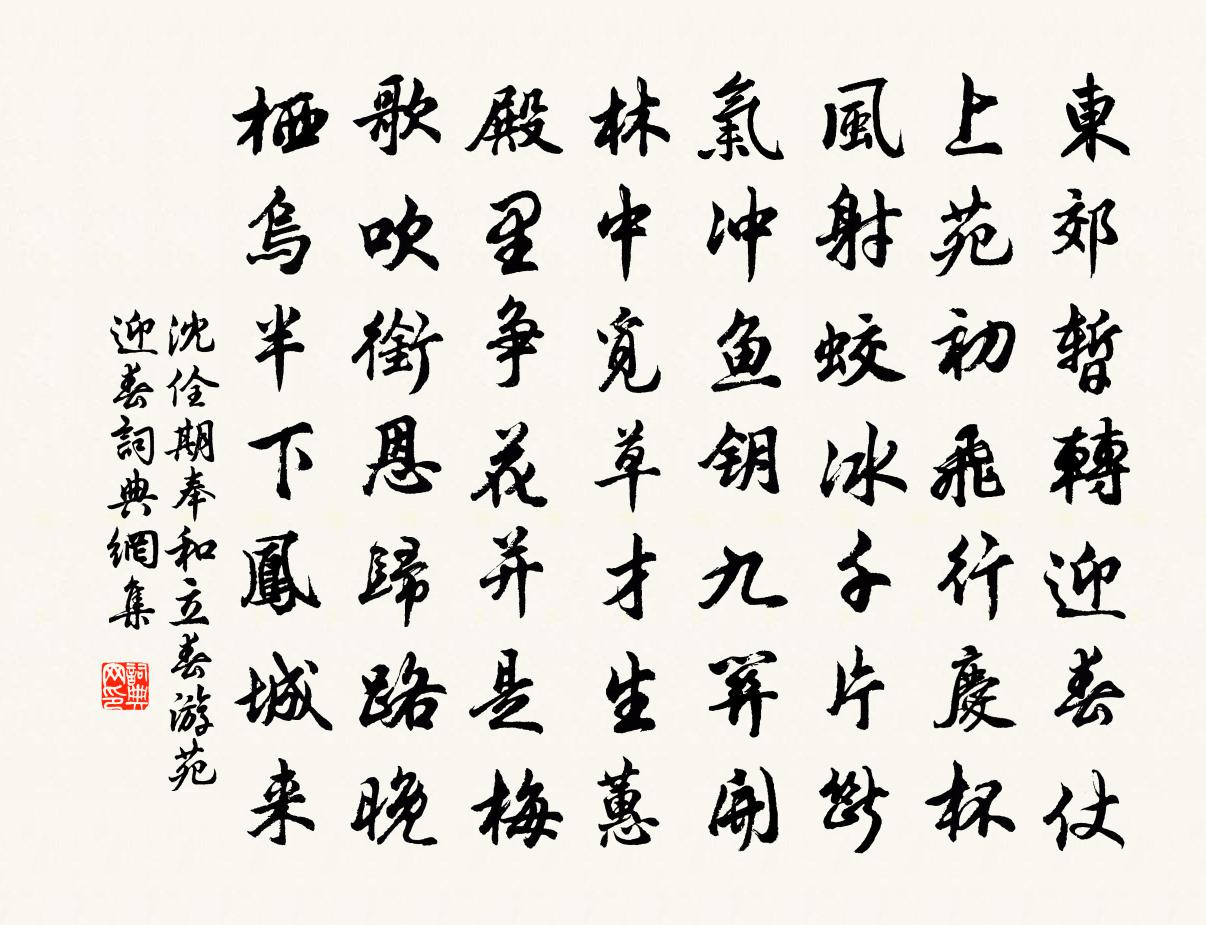 東郊暫轉迎春仗
上苑初飛行慶杯
風射蛟冰千片斷
氣冲魚钥九關開
林中覓草才生蕙
殿里争花并是梅
歌吹銜恩歸路晚
栖烏半下鳳城来
沈佺期奉和立春游苑
迎春詞典網集
詞典網印